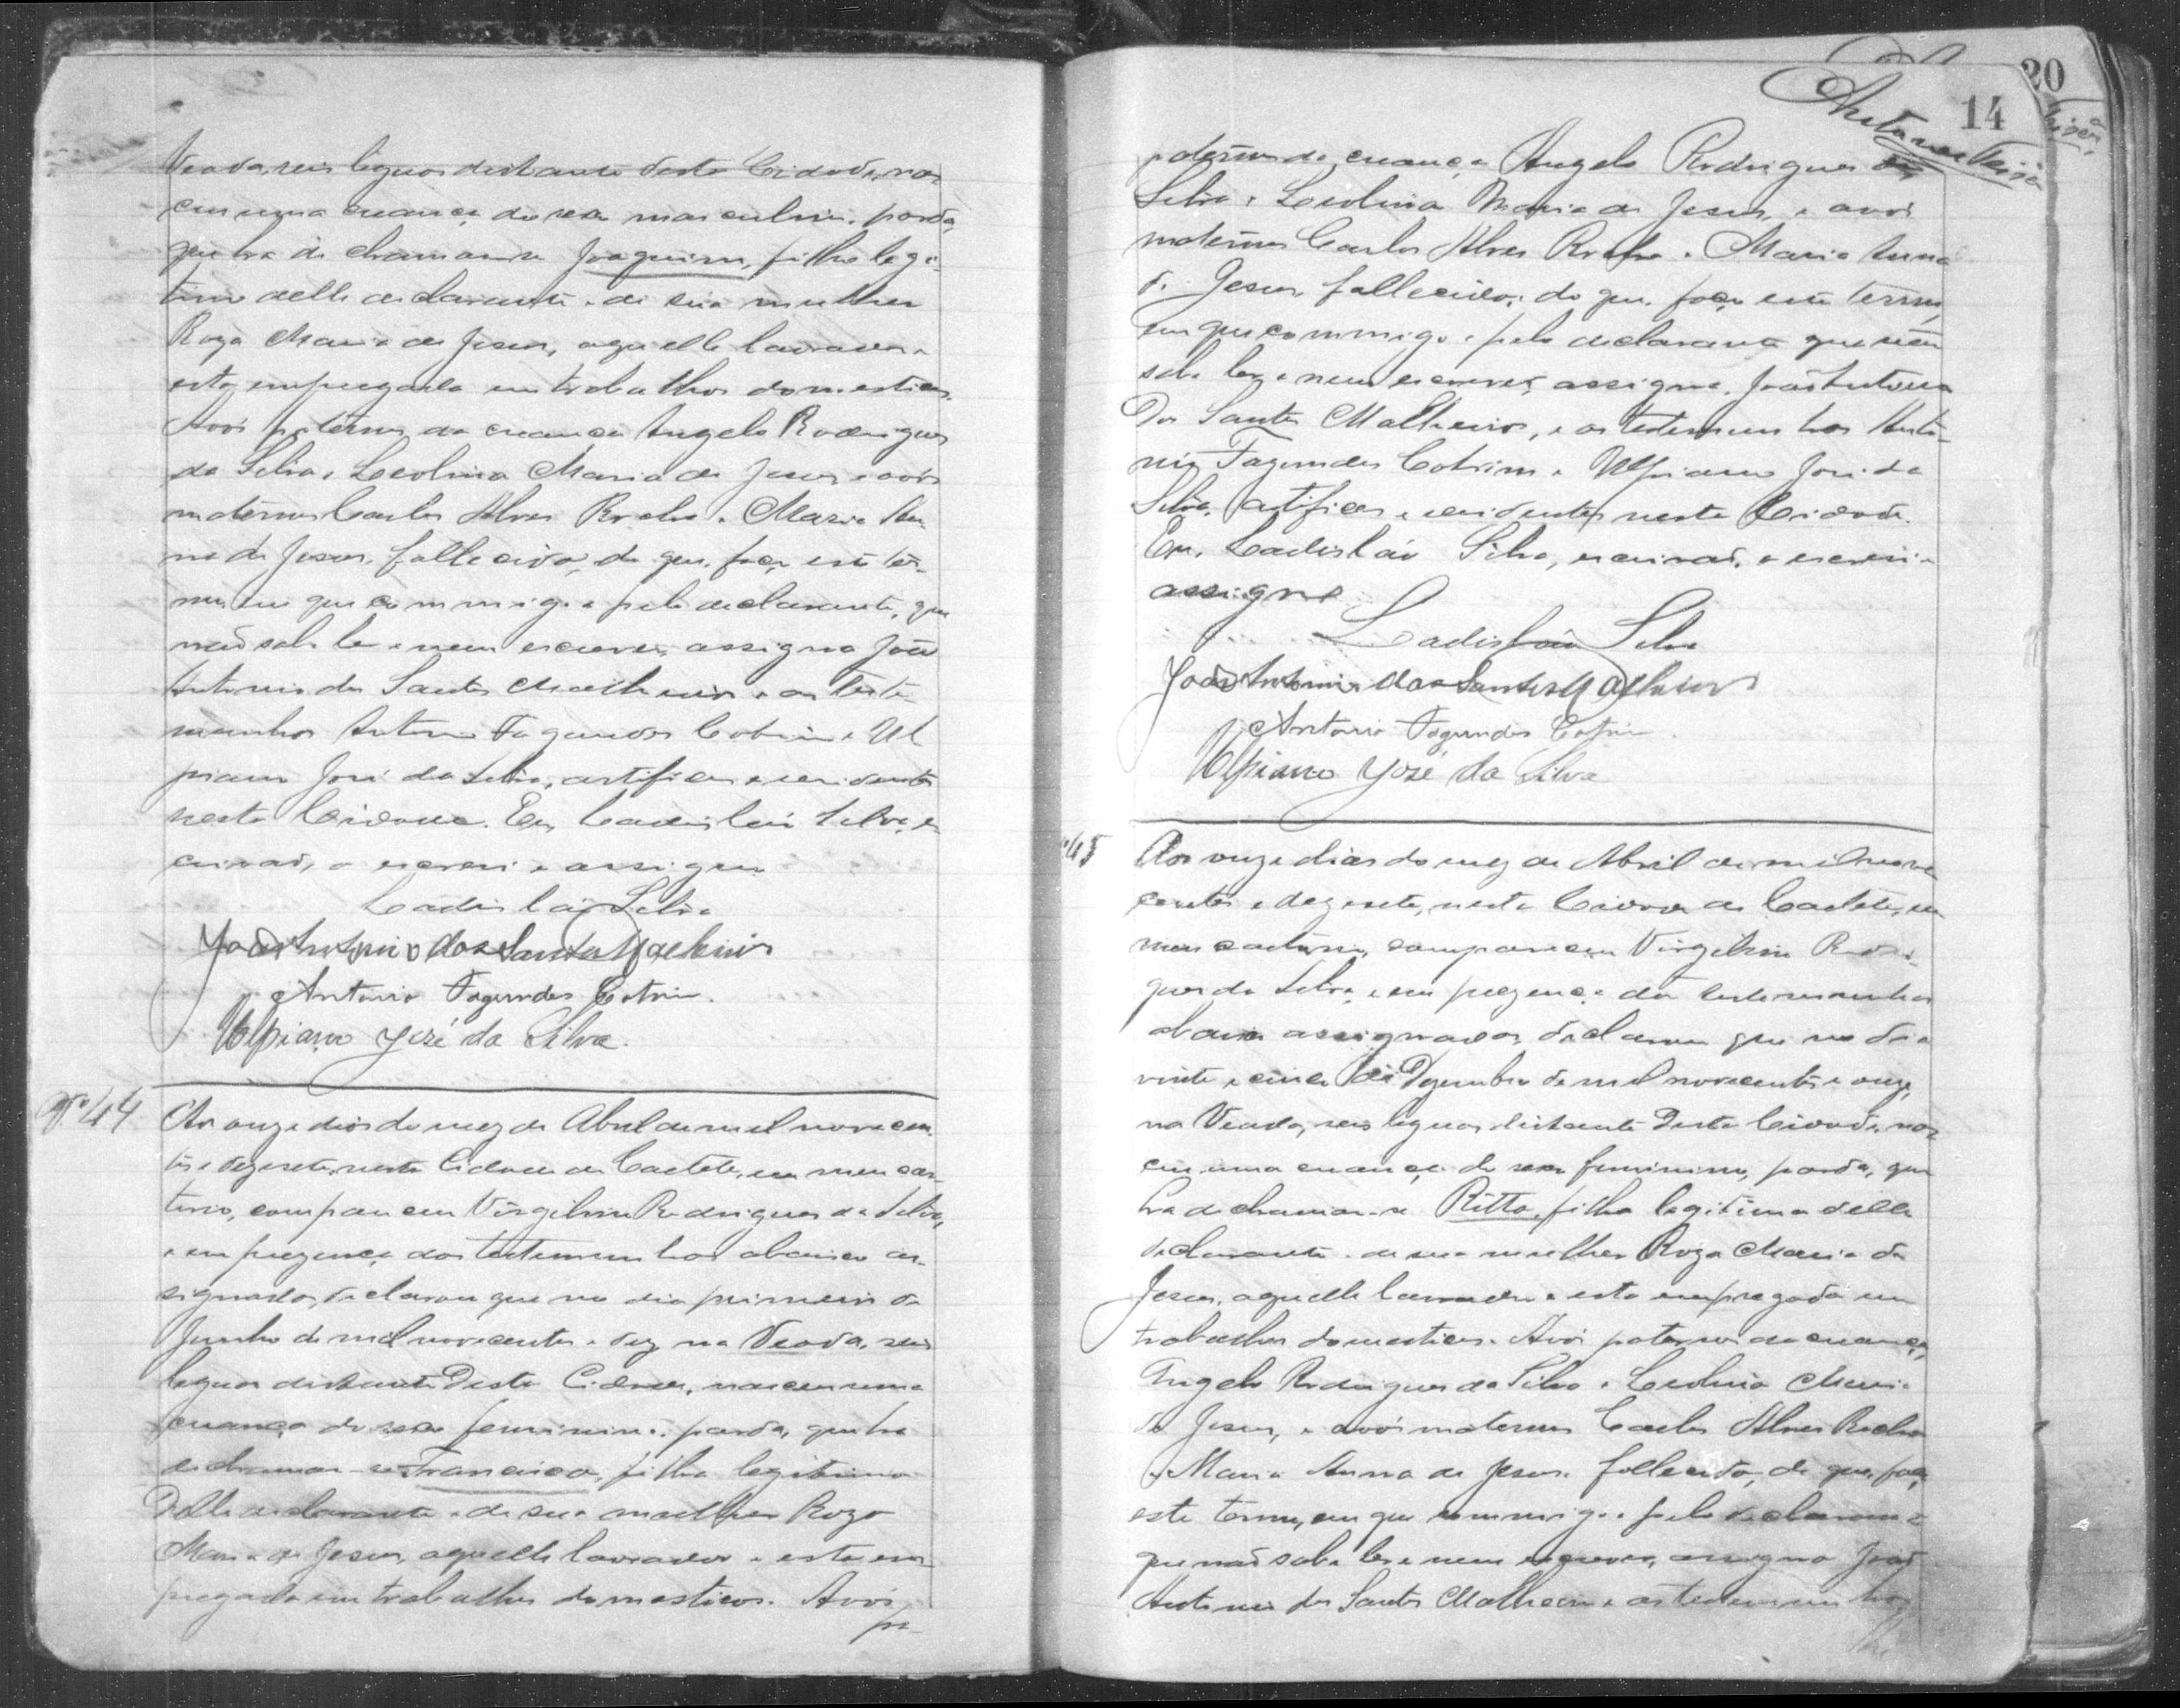 Veada, seis leguas distante desta Cidade, nas
ceu uma creança do sexo masculino, parda,
que ha de chamar-se Joaquim, filho legi-
timo delle declarante e de sua mulher
Roza Maria de Jesus, aquelle lavrador e
esta empregada em trabalhos domesticos.
Avós paternos da creança Angelo Rodrigues
da Silva e Leolina Maria de Jesus e avós
maternos Carlos Alves Rocha e Maria An-
na de Jesus, fallecida, do que, faço este ter-
mo, em que commigo e pelo declarante, que
não sabe ler e nem escrever, assigna João
Antonio dos Santos Malheiro e as teste-
munhas Antonio Fagundes Cotrim e Ul
piano José da Silva, artifices e residentes
nesta Cidade. Eu, Ladisláo Silva, es
crivão, o escrevi e assigno
Ladisláo Silva
João Antonio dos Santos Malheiro
Antonio Fagundes Cotrim.
Ulpiano José da Silva.
Nº 44
Aos onze dias do mez de Abril de mil novecen
tos e dezesete, nesta Cidade de Caeteté, em meu car-
torio, compareceu Virgilino Rodrigues da Silva,
e em prezença das testemunhas abaixo as-
signadas, declarou que no dia primeiro de
Junho de mil novecentos e dez na Veada, seis
leguas distante desta Cidade, nasceu uma
creança do sexo feminino, parda, que ha
de chamar-se Francisca, filha legitima
delle declarante e de sua mulher Roza
Maria de Jesus, aquelle lavrador e esta em-
pregada em trabalhos domesticos. Avós
pa-
20
14
paternos da creança Angelo Rodrigues da
Silva e Leolina Maria de Jesus, e avós
maternos Carlos Alves Rocha e Maria Anna
de Jesus, fallecida; do que, faço este termo,
em que commigo e pelo declarante que não
sabe ler e nem escrever, assigna João Antonio
dos Santos Malheiro, e as testemunhas Anto-
nio Fagundes Cotrim e Ulpiano José da
Silva, artifices e residentes nesta Cidade.
Eu, Ladisláo Silva, escrivão, o escrevi e
assigno
Ladisláo Silva
João Antonio dos Santos Malheiro
Antonio Fagundes Cotrim.
Ulpiano José da Silva
45
Aos onze dias do mez de Abril de mil nove
centos e dezesete, nesta Cidade de Caeteté, em
meu cartorio, compareceu Virgilino Rodri-
gues da Silva, e em prezença das testemunhas
abaixo assignadas, declarou que no dia
vinte e cinco de Dezembro de mil novecentos e onze,
na Veada, seis leguas distante desta Cidade, nas
ceu uma creança do sexo feminino, parda, que
ha de chamar-se Ritta, filha legitima delle
declarante e de sua mulher Roza Maria de
Jesus, aquelle lavrador e esta empregada em
trabalhos domesticos. Avós paternos da creança,
Angelo Rodrigues da Silva e Leolina Maria
de Jesus, e avós maternos Carlos Alves Rocha
e Maria Anna de Jesus, fallecida, do que, faço
este termo, em que commigo e pelo declarante
que não sabe ler e nem escrever, assigna João
Antonio dos Santos Malheiro e as testemunhas